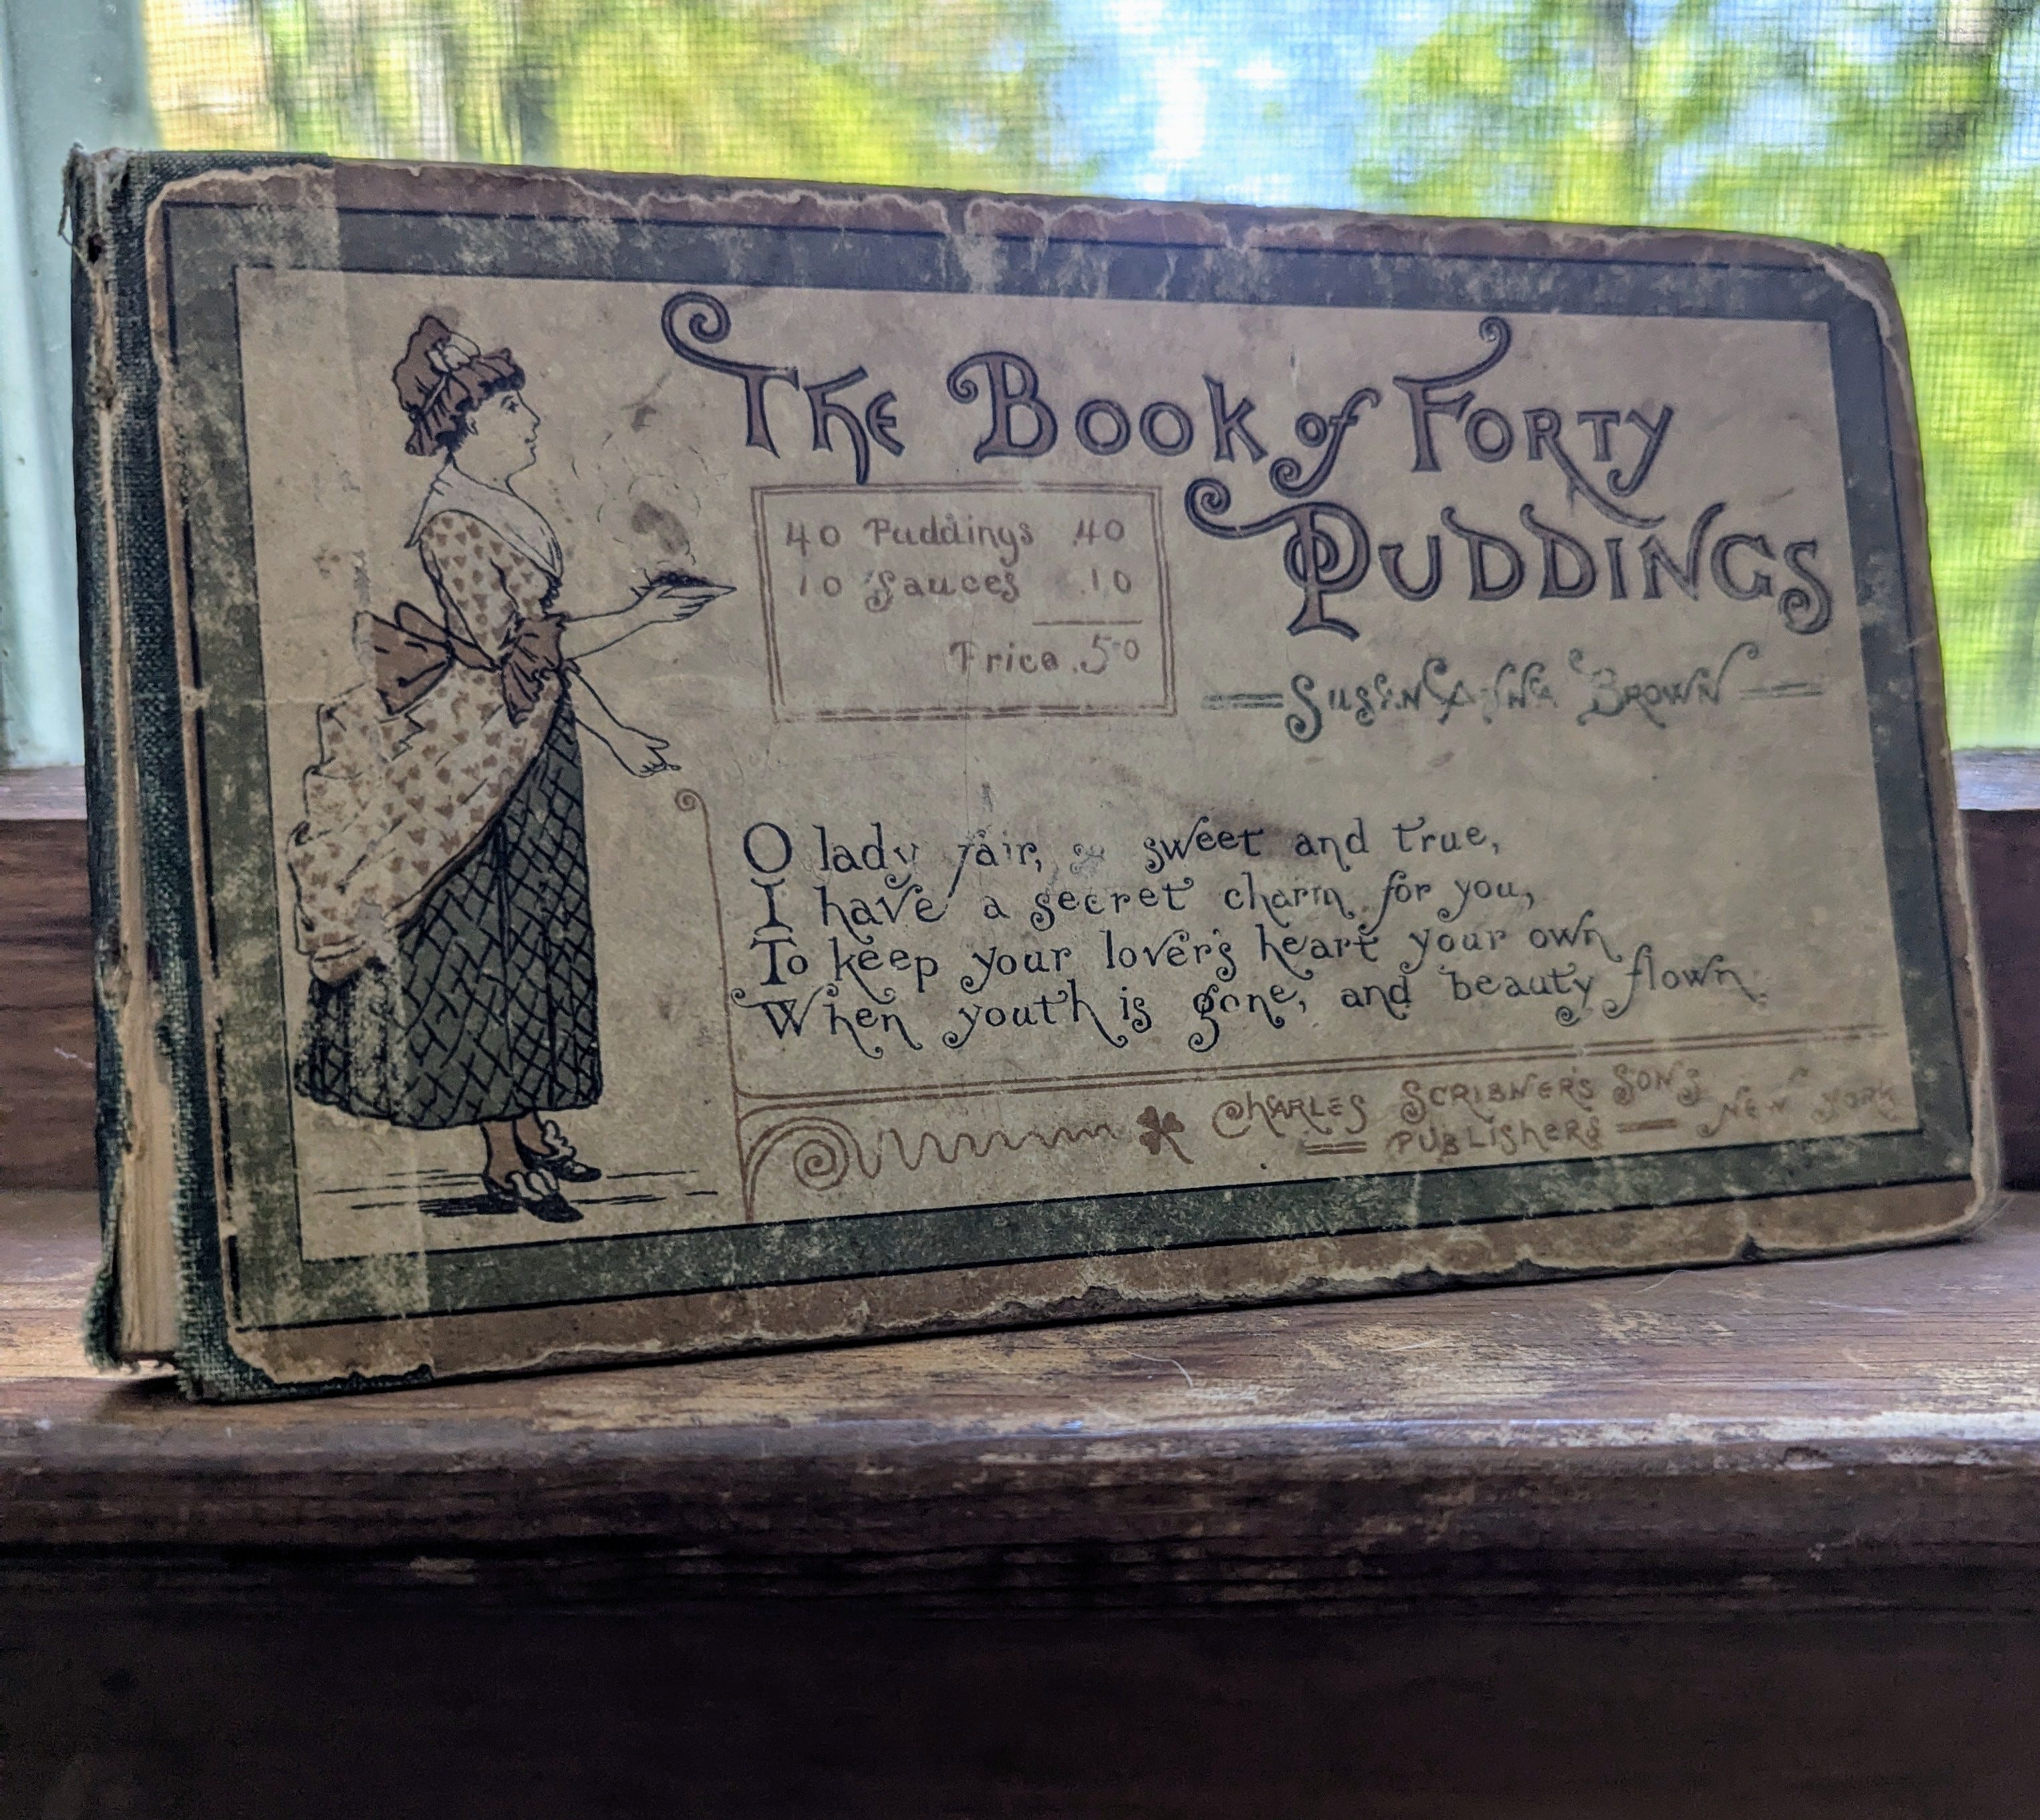 The Book of Forty
Puddings
40 Puddings .40
10 Sauces .10
Price .50
Susan Anna Brown
O lady fair, so sweet and true,
I have a secret charm for you,
To keep your lover's heart your own
When youth is gone, and beauty flown.
Charles Scribner's Sons
Publishers New York